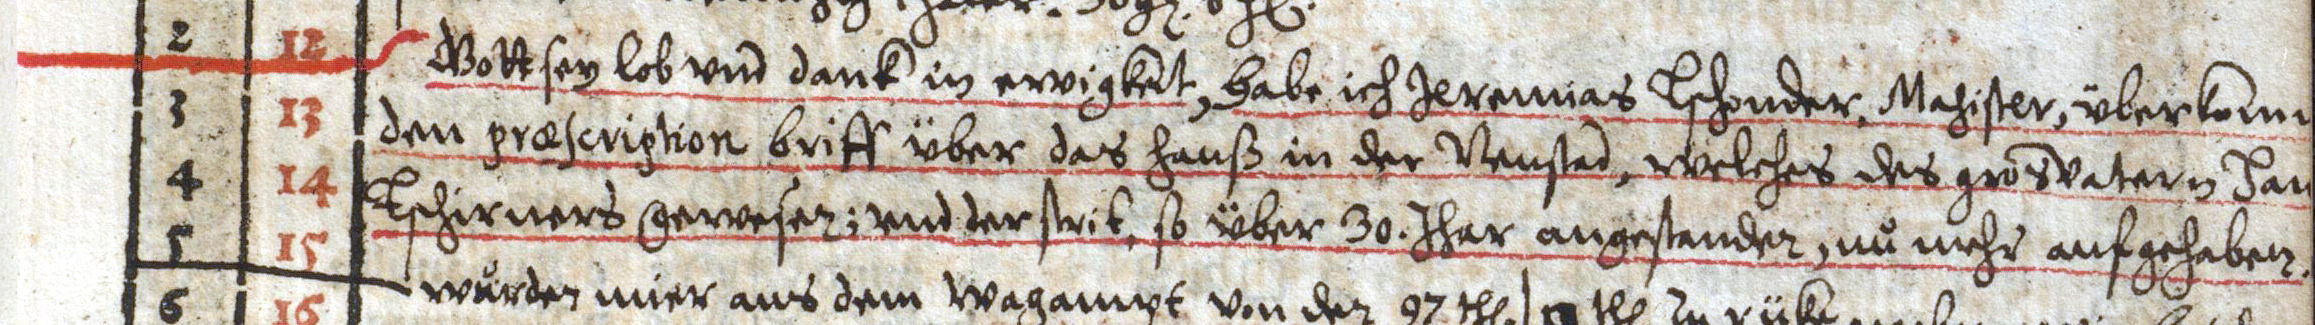 2 12 Gott sey lob vnd dank in ewigkeit, Habe ich Jeremias Tschonder, Magister, überkomm
3 13 den præscription briff über das hauß in der Neustad, welches des großvatern Jan
4 14 Tschirners gewesen; vnd der strit, so über 30. Jhar angestanden, nu mehr aufgehaben.
5 15
6 16 wurden mier aus dem Wagampt von den 97 thl.